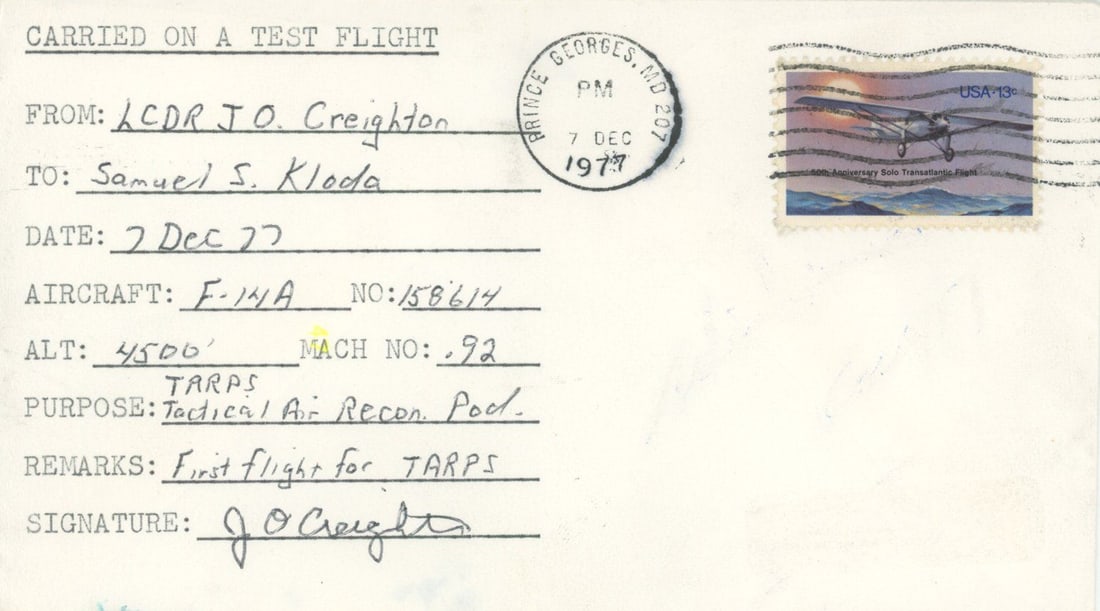 CARRIED ON A TEST FLIGHT
FROM: LCDR J O. Creighton
TO: Samuel S. Kloda
DATE: 7 Dec 77
AIRCRAFT: F-14A NO: 158614
ALT: 4500' MACH NO: .92
TARPS
PURPOSE: Tactical Air Recon. Pod.
REMARKS: First flight for TARPS
SIGNATURE: J O Creighton
PRINCE GEORGES, MD 207
PM
7 DEC
1977
USA·13c
50th Anniversary Solo Transatlantic Flight